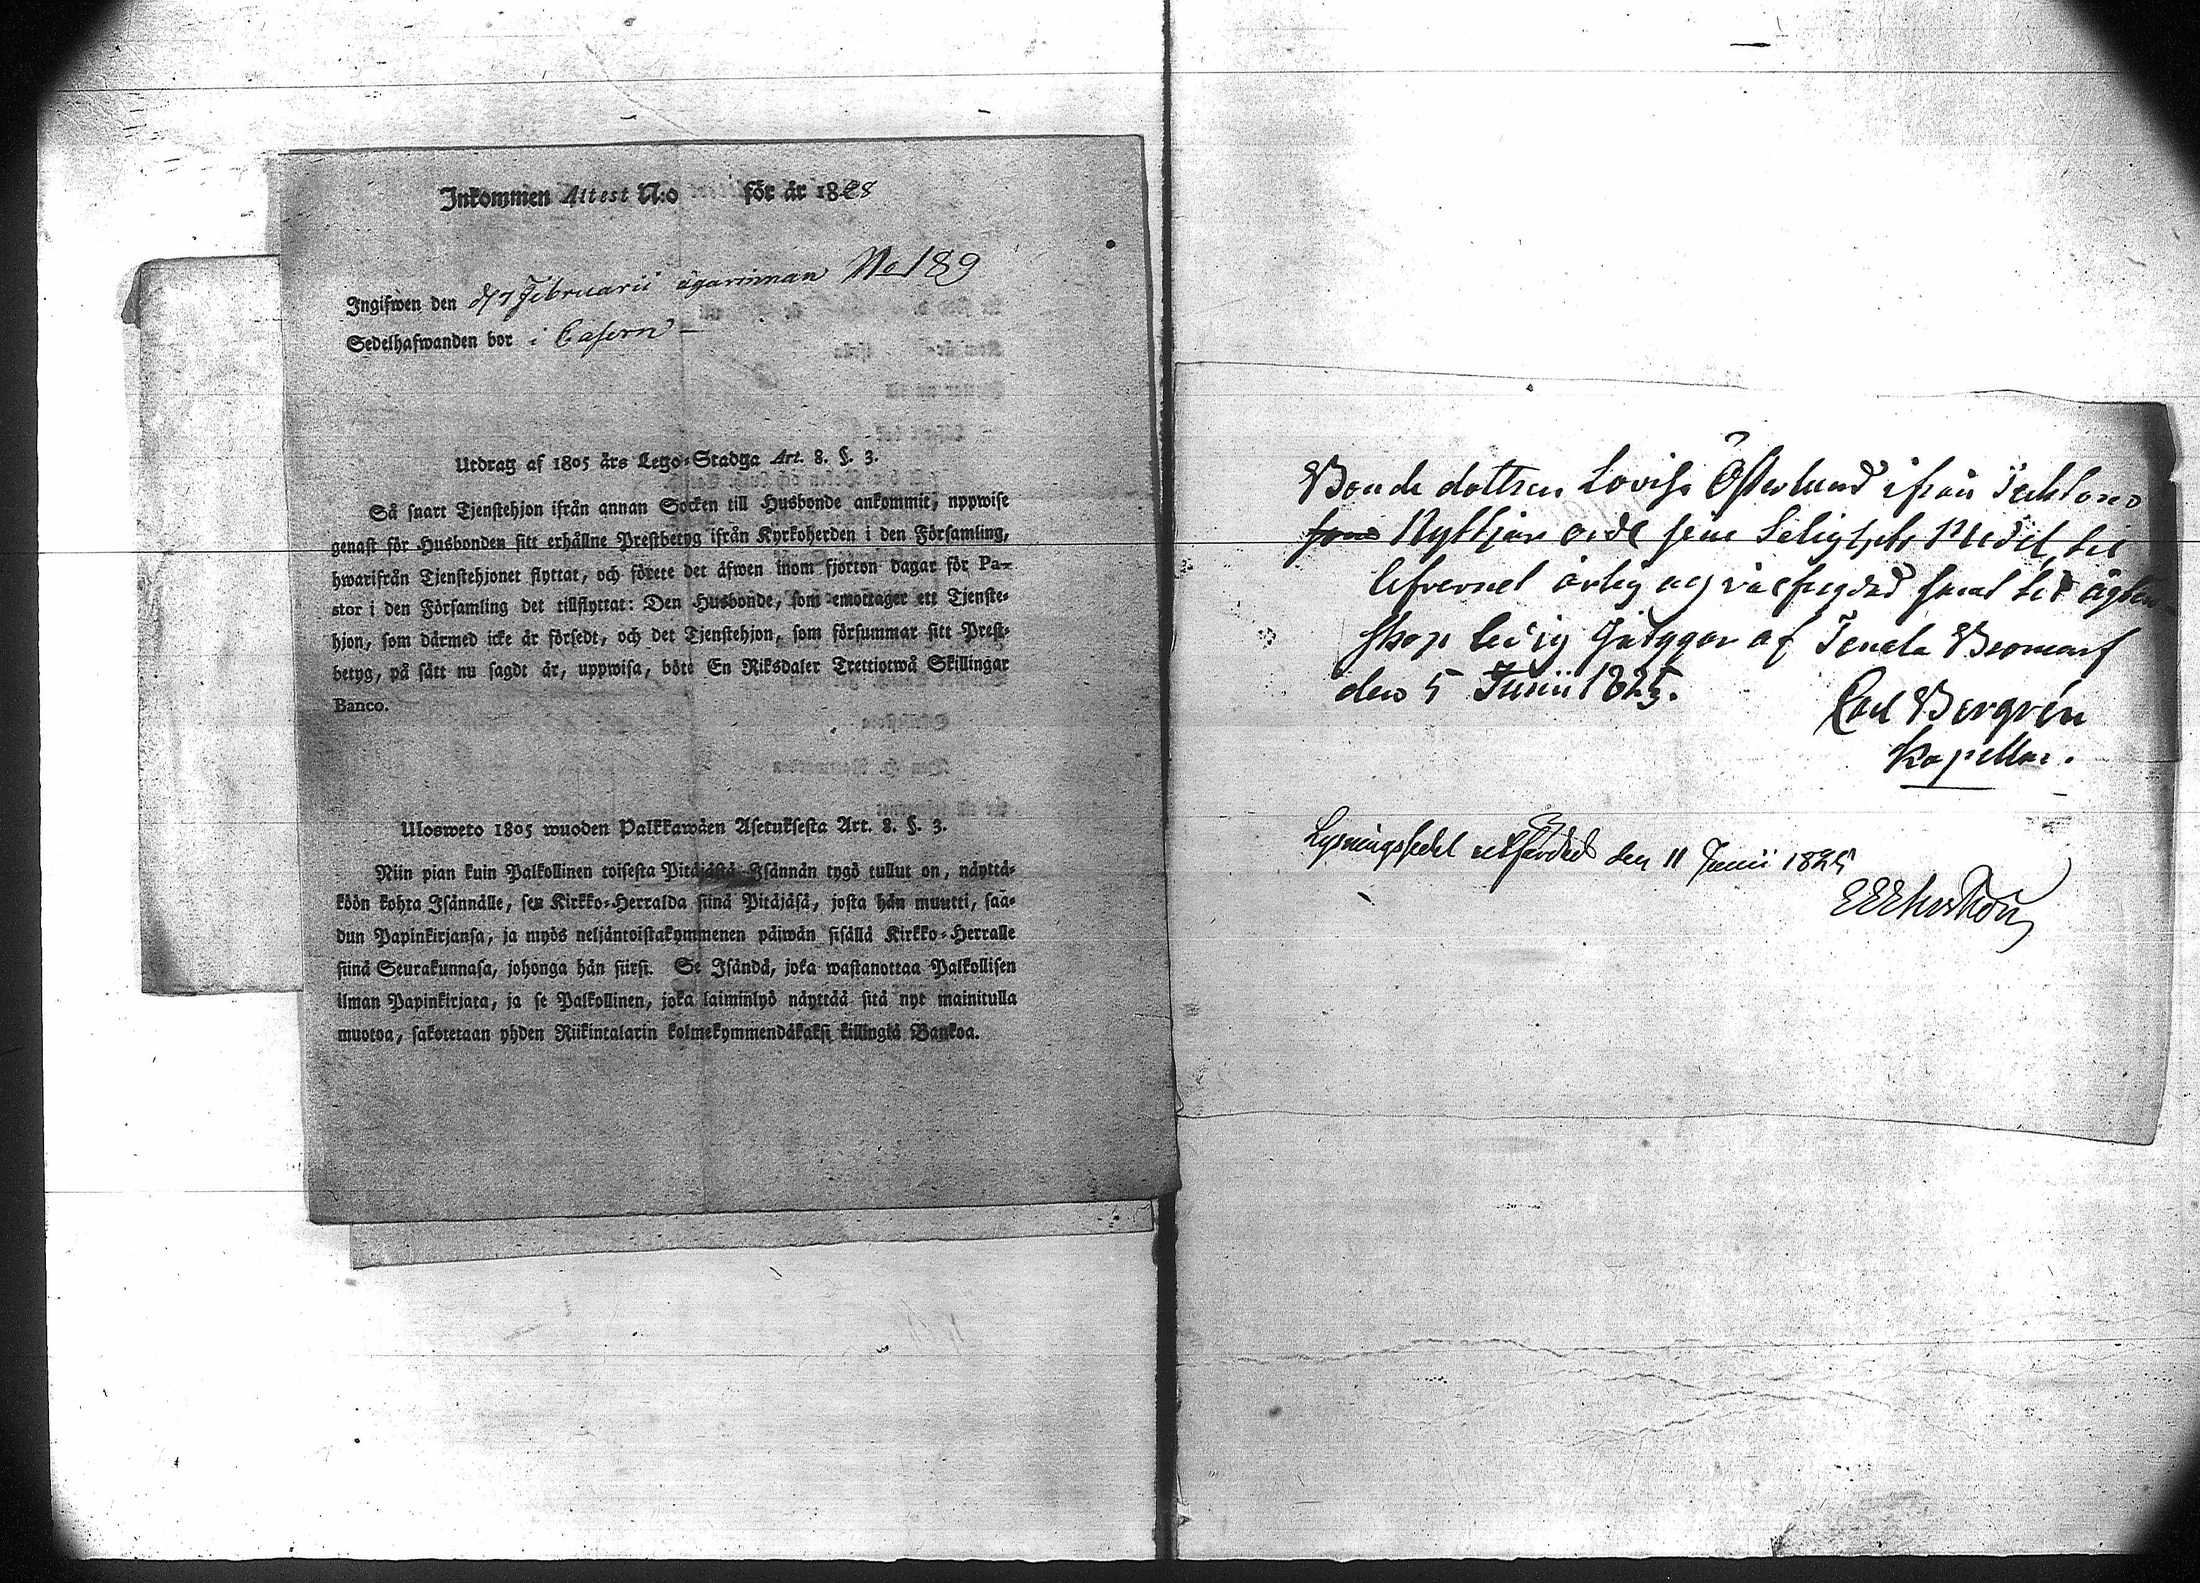 Inkommen Attest N:o för år 1828
Ingifwen den d 7 Februarii ägarinnan No 189
Sedelhafwanden bor i Casern
Utdrag af 1805 års Lego-Stadga Art. 8. §. 3.
Så snart Tjenstehjon ifrån annan Socken till Husbonde ankommit, uppwise
genast för Husbonden sitt erhållne Prestbetyg ifrån Kyrkoherden i den Församling,
hwarifrån Tjenstehjonet flyttat, och förete det äfwen inom fjorton dagar för Pa-
stor i den Församling det tillflyttat: Den Husbonde, som emottager ett Tjenste-
hjon, som därmed icke är försedt, och det Tjenstehjon, som försummar sitt Prest-
betyg, på sätt nu sagdt är, uppwisa, böte En Riksdaler Trettiotwå Skillingar
Banco.
Ulosweto 1805 wuoden Palkkawäen Asetuksesta Art. 8. §. 3.
Niin pian kuin Palkollinen toisesta Pitäjästä Isännän tygö tullut on, näyttä-
köön kohta Isännälle, sen Kirkko-Herralda siinä Pitäjäsä, josta hän muutti, saa-
dun Papinkirjansa, ja myös neljäntoistakymmenen päiwän sisällä Kirkko-Herralle
siinä Seurakunnasa, johonga hän siirsi. Se Isändä, joka wastanottaa Palkollisen
ilman Papinkirjata, ja se Palkollinen, joka laiminlyö näyttää sitä nyt mainitulla
muotoa, sakotetaan yhden Riikintalarin kolmekymmendäkaksi killingiä Bankoa.
Bonde dottren Lovisa Österlund ifrån
Nyttjar orde sine Salighets Medel, till
lefvernet ärlig och fregdad samt till ägten-
skap ledig intygar af Tenala Bromarf
den 5 Junii 1825.
Carl Bergrén
Kapellan.
Lysningssedel utfärdad den 11 Junii 1825